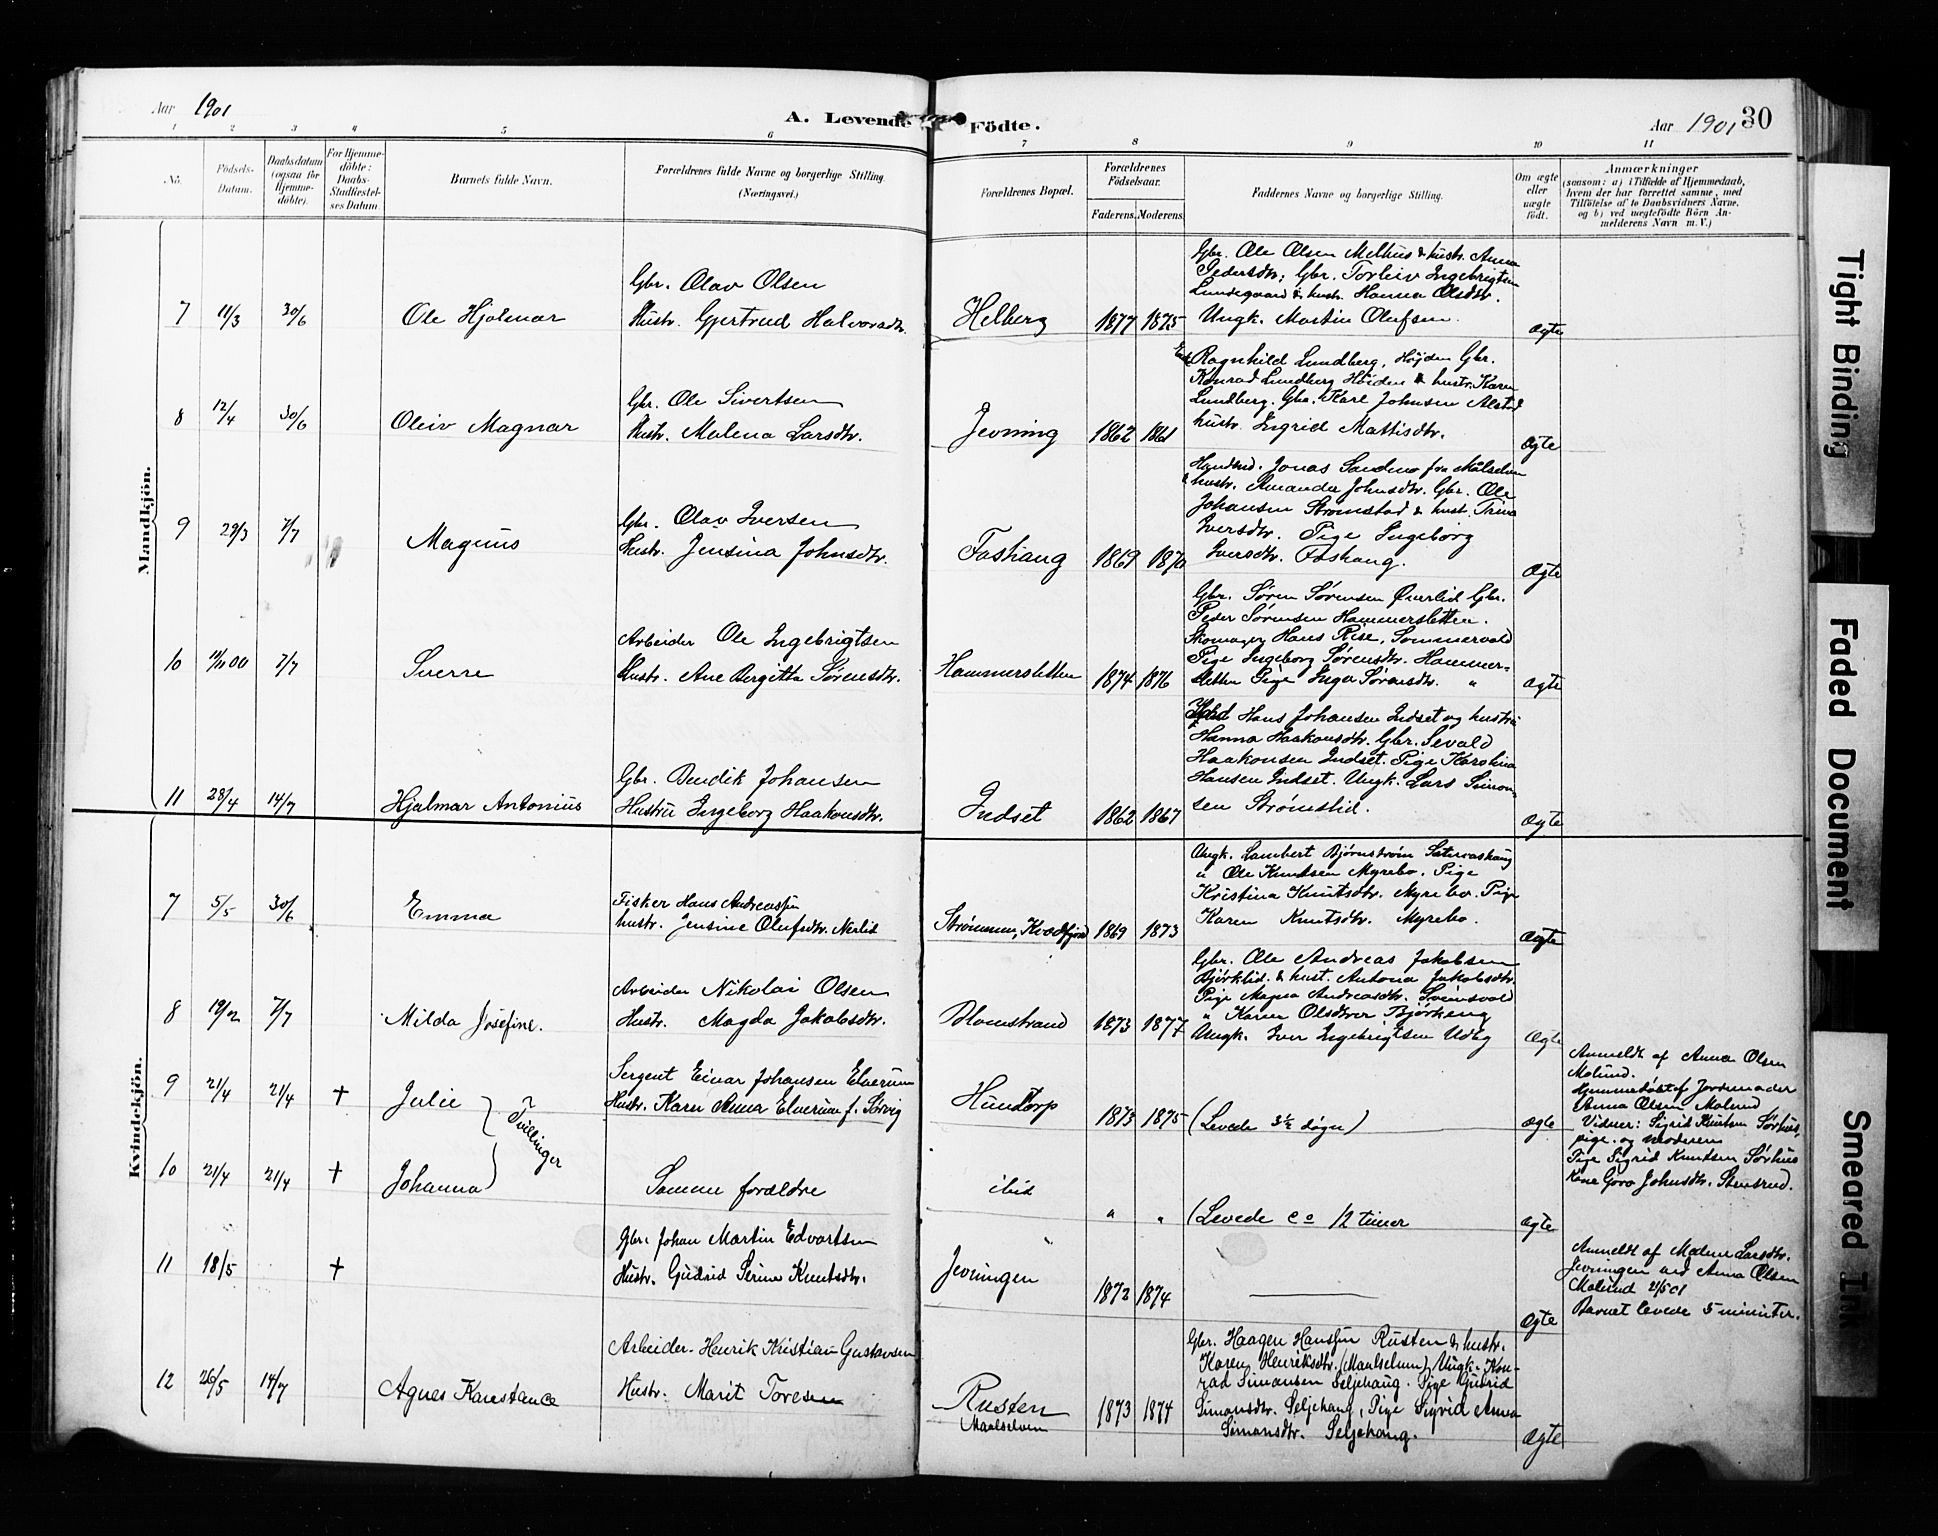 Aar 1901
A. Levende Födte.
Aar 1901 30
1 2 3 4 5 6 7 8 9 10 11
No.
Födsels-Datum.
Daabsdatum (ogsaa for Hjemme-döbte).
For Hjemme-döbte: Daabs-Stadfæstel-ses Datum.
Barnets fulde Navn.
Forældrenes fulde Navne og borgerlige Stilling.
(Næringsvei.)
Forældrenes Bopæl.
Forældrenes Födselsaar.
Faderens. Moderens.
Faddernes Navne og borgerlige Stilling.
Om ægte eller uægte födt.
Anmærkninger
(saasom: a) i Tilfælde af Hjemmedaab,
hvem der har forrettet samme, med
Tilföielse af to Daabsvidners Navne,
og b) ved uægtefödte Börn An-
melderens Navn m. V.)
Mandkjön.
7 11/3 30/6 Ole Hjalmar
Gbr. Olav Olsen
Hustr. Gjertrud Halvorsdtr.
Helberg 1877 1875
Gbr. Ole Olsen Melhus & hustr. Anna
Pedersdtr. Gbr. Torleiv Ingebrigtsen
Lundegaard & hustr. Hanna Olsdtr.
Ungk. Martin Olufsen.
Ægte
8 12/4 30/6 Oleiv Magnar
Gbr. Ole Sivertsen
Hustr. Malena Larsdtr.
Jevning 1862 1861
Ragnhild Lundberg, Højden Gbr.
Konrad Lundberg Høiden & hustr. Karen
Lundberg. Gbr. Karl Johnsen Alstad
hustr. Ingrid Mattisdtr.
Ægte
9 29/3 7/7 Magnus
Gbr. Olav Iversen
Hustr. Jensina Johnsdtr.
Foshaug 1869 1870
Jonas Sandmo fra Målselven
& hustr. Amanda Johnsdtr. Gbr. Ole
Johansen Strømstad & hust. Trina
Iversdtr. Pige Ingeborg
Iversdtr. Foshaug.
Ægte
10 11/11 00 7/7 Sverre
Arbeider Ole Ingebrigtsen
Hustr. Ane Birgitte Sørensdtr.
Hammersletten 1874 1876
Gbr. Søren Sørensen Øverlid Gbr.
Peder Sørensen Hammersletten.
Skomager Hans Rise, Sommervold
Pige Ingeborg Sørensdtr. Hammer-
sletten Pige Inga Sørensdtr. "
Ægte
11 28/4 14/7 Hjalmar Antonius
Gbr. Bendik Johansen
Hustru Ingeborg Haakonsdtr.
Indset 1862 1867
Hans Johansen Indset og hustru
Hanna Haakonsdtr. Gbr. Sevald
Haakonsen Indset. Pige Karolina
Hansen Indset. Ungk. Lars Simon-
sen Strømslid.
Ægte
Kvindekjön.
7 5/5 30/6 Emma
Fisker Hans Andreassen
hustr. Jensine Olufsdtr. Nerlid
Strømmen, Kvædfjord 1869 1873
Ungk. Lambert Bjørnstrøm Sætervashaug
" Ole Knutsen Myrebo. Pige
Kristina Knutsdtr. Myrebo. Pige
Karen Knutsdtr. Myrebo.
Ægte
8 19/02 7/7 Milda Josefine.
Arbeider Nikolai Olsen
Hustr. Magda Jakobsdtr.
Blomstrand 1873 1877
Gbr. Ole Andreas Jakobsen
Bjørklid. & hust. Antona Jakobsdtr.
Pige Magna Andreasdtr. Sveinsvold
" Karen Olsdtrer Bjørkeng
Ungk. Iver Ingebrigtsen Udby
Ægte
9 21/4 21/4 † Julie
Tvillinger
Sergent Einar Johansen Elverum
Hustr. Karen Anna Elverum f. Sørvig
Hundtorp 1873 1875
(Levede 3½ døgn)
Ægte
Anmeldt af Anna Olsen
Molund.
Hjemmedøbt af Jordemoder
Anna Olsen Molund
Vidner: Sigrid Knutsen Sørhus,
pige. og moderen
10 21/4 21/4 † Johanna
Samme forældre
ibid " "
(Levede ca 12 timer
Ægte
Pige Sigrid Knutsen Sørhus
Kone Goro Johnsdtr. Stensrud.
11 18/5 †
Gbr. Johan Martin Edvartsen
Hustr. Gudrid Serine Knutsdtr.
Jevningen 1872 1874
Ægte
Anmeldt af Malene Larsdtr.
Jevningen ved Anna Olsen
Molund 21/5 01
Barnet levede 5 minuter.
12 26/5 14/7 Agnes Konstance
Arbeider. Henrik Kristian Gustavsen
Hustr. Marit Toresen
Rusten
Maalselven
1873 1874
Gbr. Haagen Hanssen Rusten & hustr.
Karen Henriksdtr. (Maalselven) Ungk. Kon-
rad Simonsen Seljehaug. Pige Gudrid
Simonsdtr. Seljehaug, Pige Sigrid Anna
Simonsdtr. Seljehaug.
Ægte
Tight Binding
Faded Document
Smeared Ink